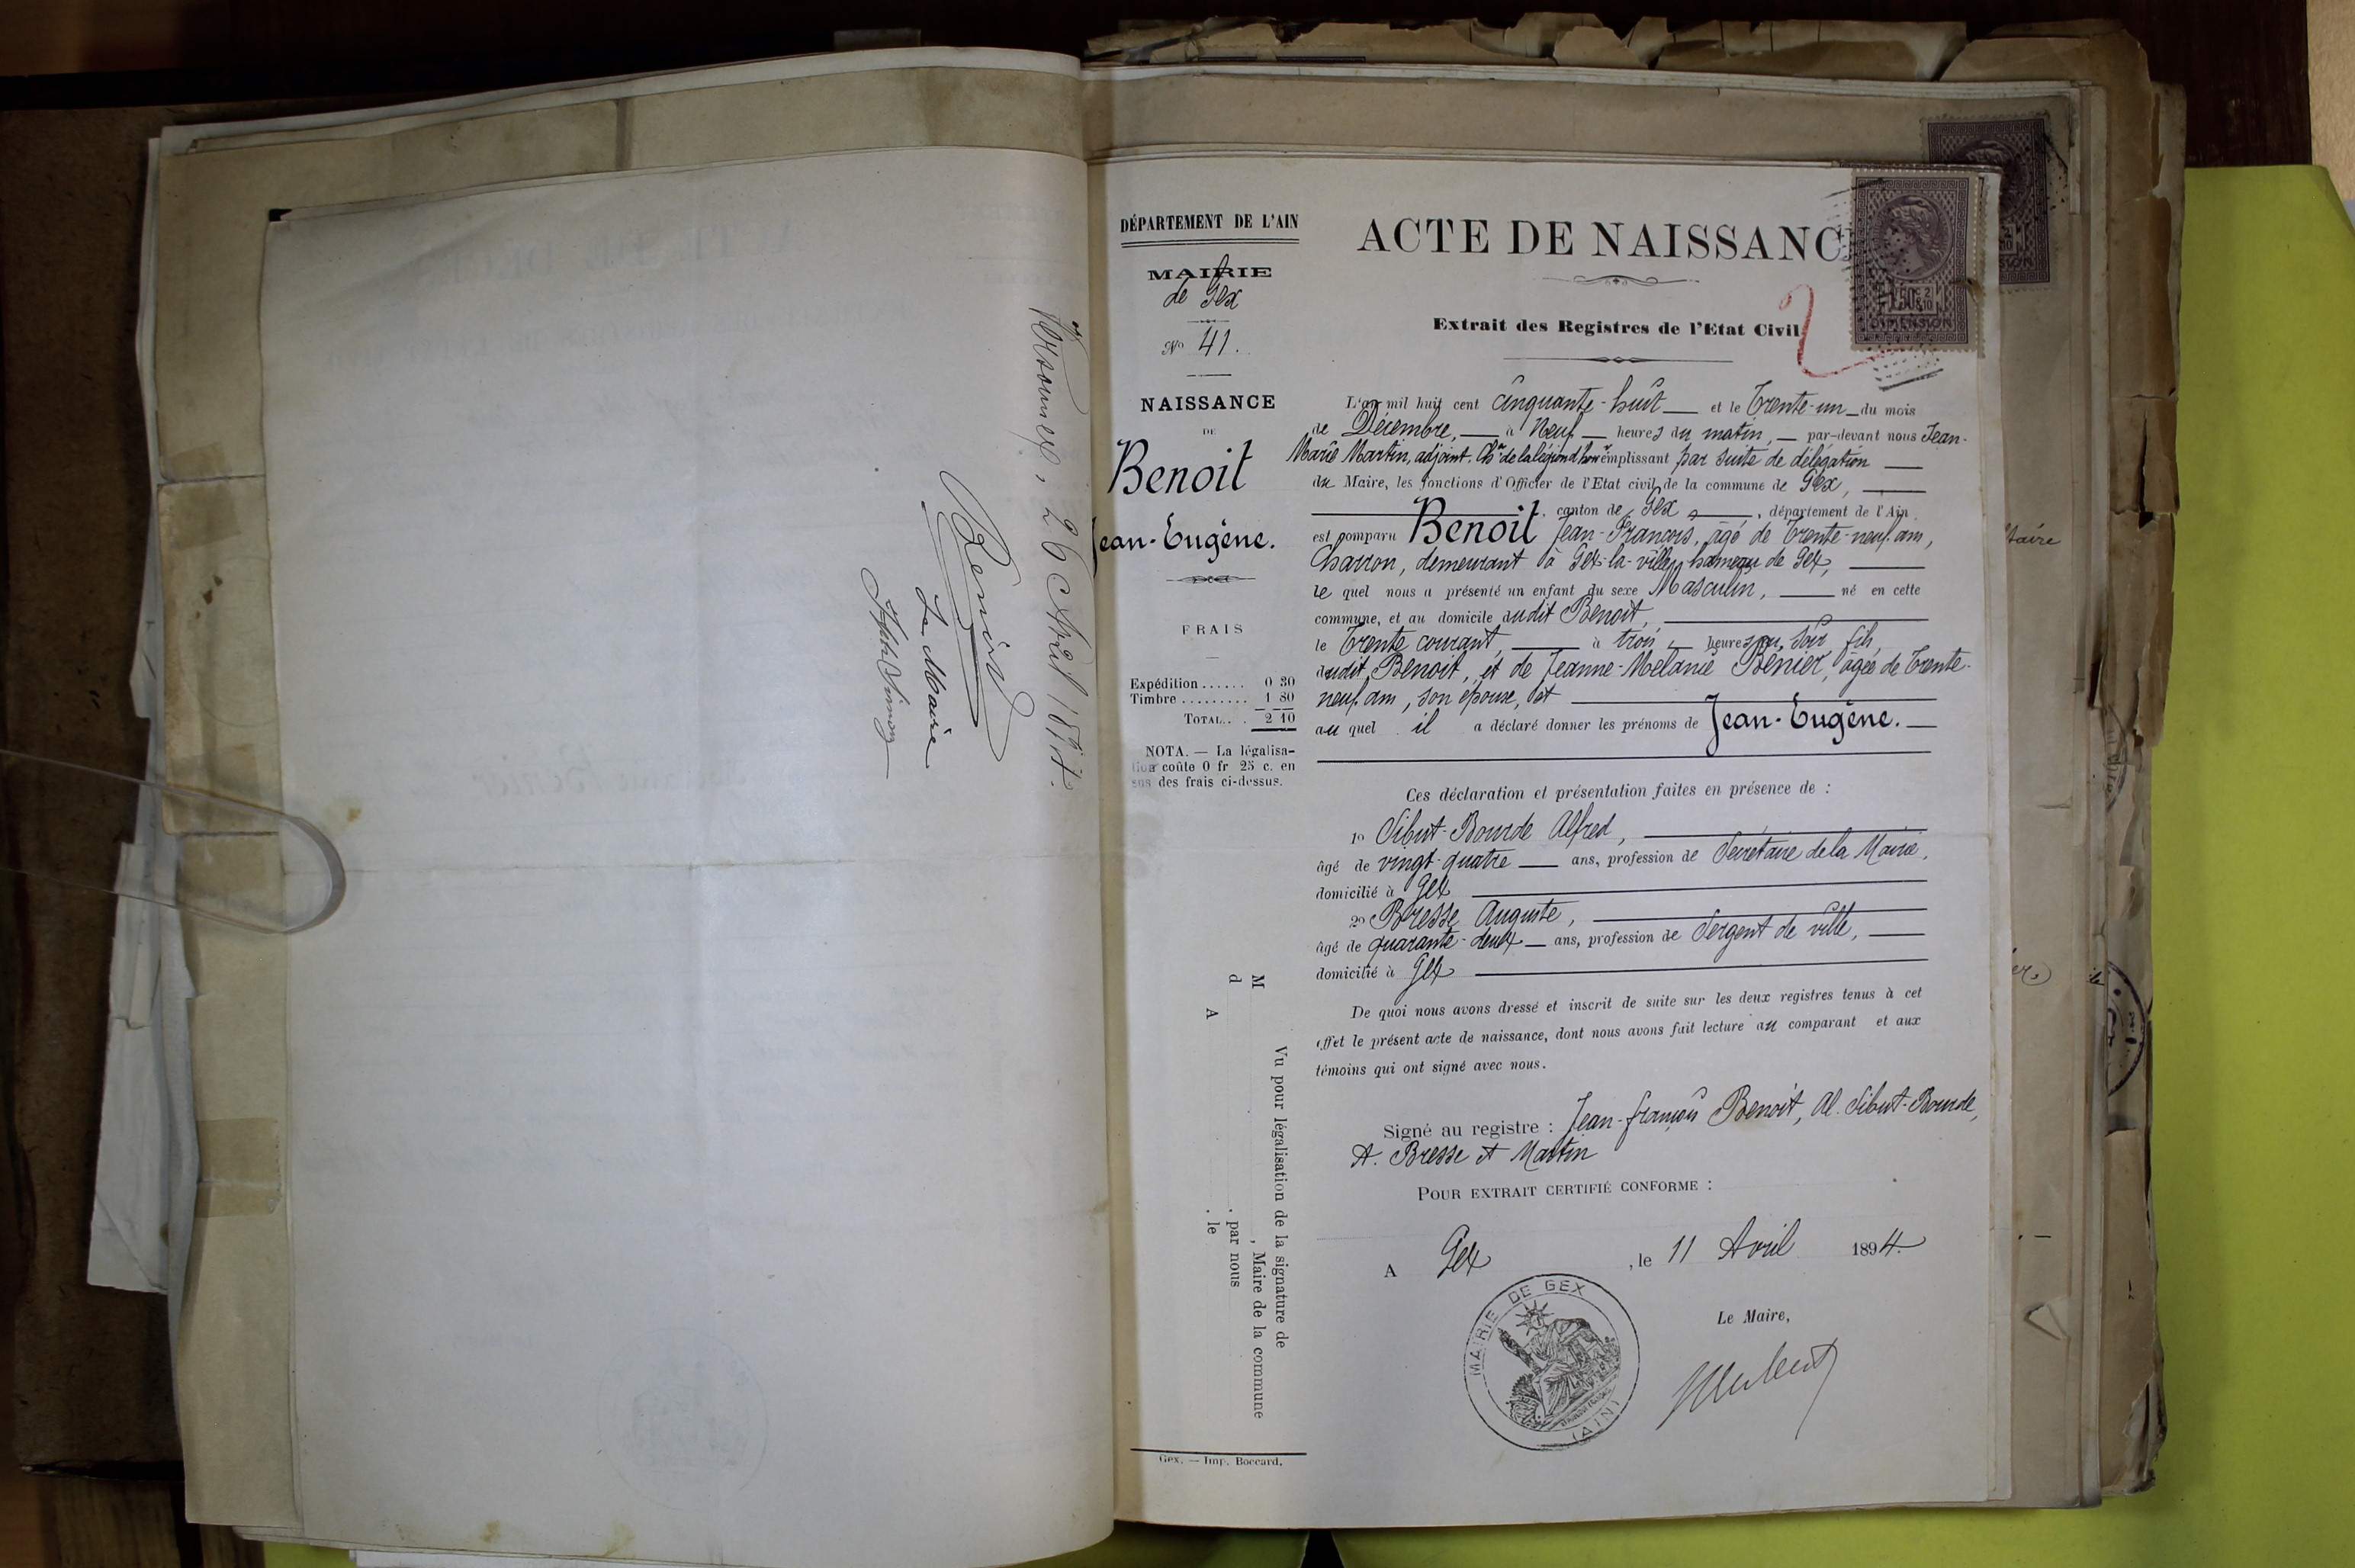 Versonnex, 26 Avril 1894.
Benoit
Le Maire
DÉPARTEMENT DE L'AIN
MAIRIE
de Gex
No 41.
NAISSANCE
DE
Benoit
Jean-Eugène.
FRAIS
Expédition...... 0 30
Timbre......... 1 80
TOTAL... 2 10
NOTA. — La légalisa-
tion coûte 0 fr 25 c. en
sus des frais ci-dessus.
Vu pour légalisation de la signature de
M , Maire de la commune
d . par nous
A . le
Gex. — Imp. Boccard.
ACTE DE NAISSANC
50c 2/10
DIMENSION
2
Extrait des Registres de l'Etat Civil
L'an mil huit cent Cinquante-huit et le Trente-un du mois
de Décembre, à Neuf heures du matin, par-devant nous Jean-
Marie Martin, adjoint. Chr de la légion d'honr remplissant par suite de délégation
du Maire, les fonctions d'Officier de l'Etat civil de la commune de Gex,
, canton de Gex , département de l'Ain
est comparu Benoit Jean-François, âgé de Trente-neuf ans,
Charron, demeurant à Gex-la-ville, hameau de Gex,
le quel nous a présenté un enfant du sexe Masculin, né en cette
commune, et au domicile dudit Benoit,
le Trente courant, à trois heures du soir fils
dudit Benoit, et de Jeanne-Mélanie Benier, âgée de Trente-
neuf ans, son épouse, et
au quel il a déclaré donner les prénoms de Jean-Eugène.
Ces déclaration et présentation faites en présence de :
1o Sibut-Bourde Alfred,
âgé de vingt-quatre ans, profession de Secrétaire de la Mairie,
domicilié à Gex
2o Bresse Auguste,
âgé de quarante-deux ans, profession de Sergent de ville,
domicilié à Gex
De quoi nous avons dressé et inscrit de suite sur les deux registres tenus à cet
effet le présent acte de naissance, dont nous avons fait lecture au comparant et aux
témoins qui ont signé avec nous.
Signé au registre : Jean-françois Benoit, Al. Sibut-Bourde,
A. Bresse et Martin
POUR EXTRAIT CERTIFIÉ CONFORME :
A Gex , le 11 Avril 1894.
Le Maire,
MAIRIE DE GEX
(AIN)